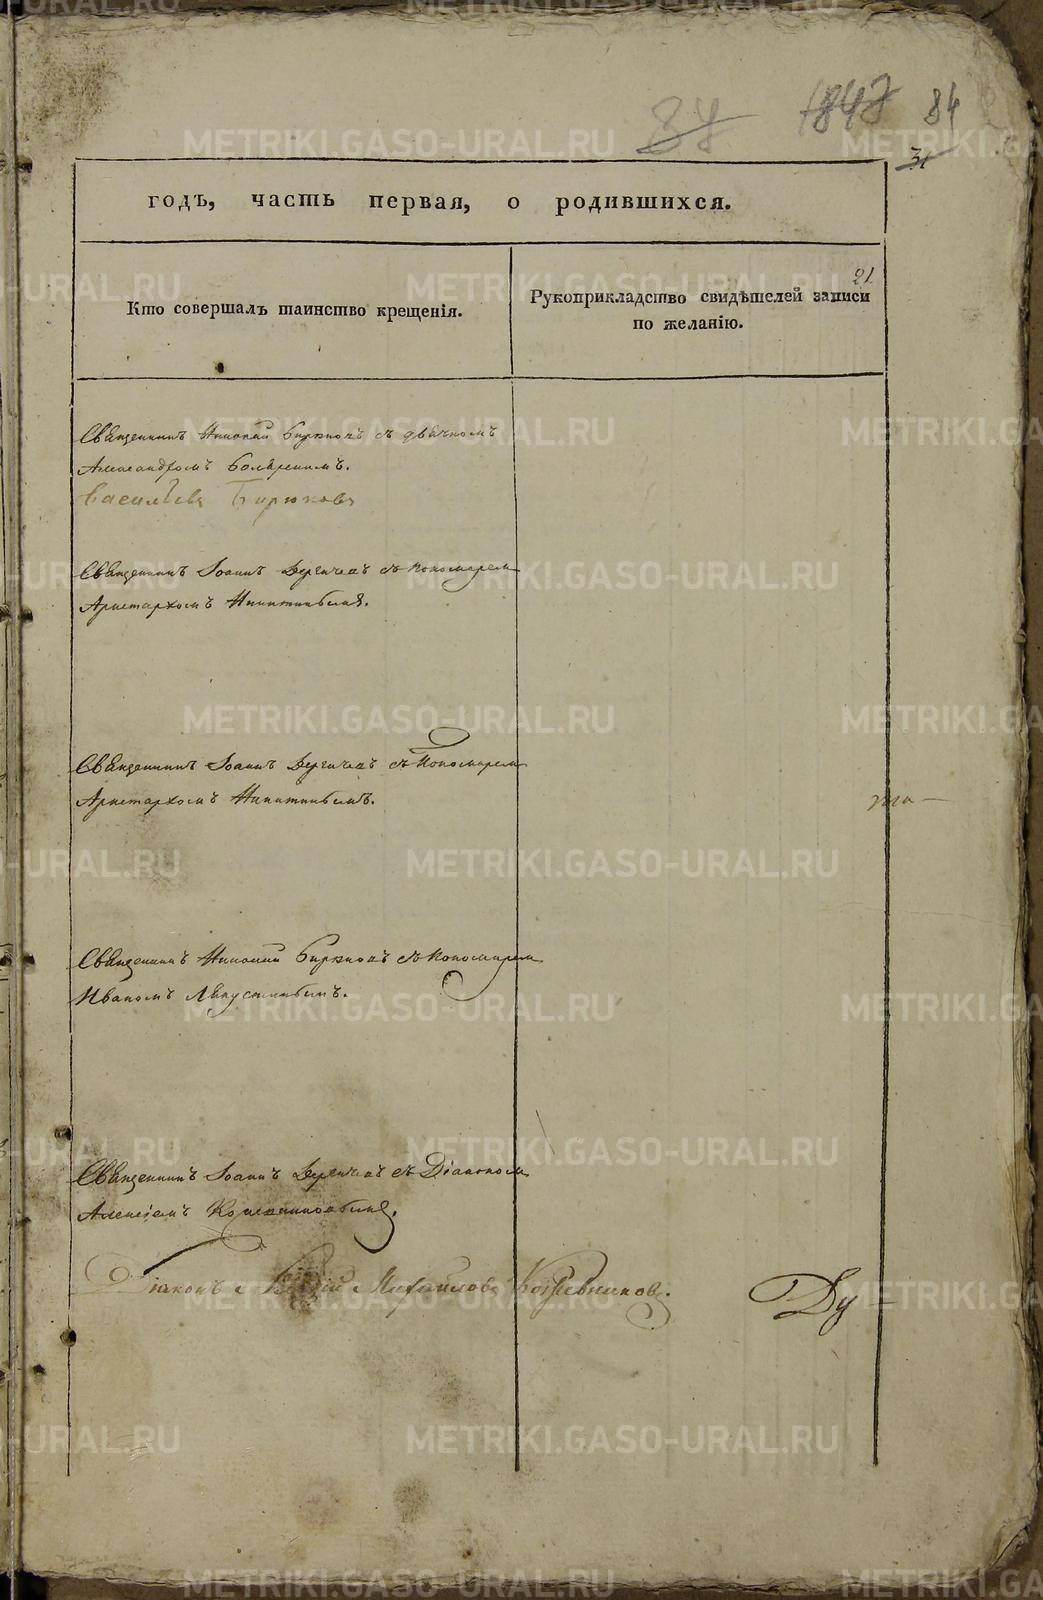 1847 84
37
31
годъ, часть первая, о родившихся.
Кто совершалъ таинство крещенія.
21.
Рукоприкладство свидѣтелей записи
по желанію.
Священникъ Николай Бирюковъ съ дьячкомъ
Александромъ
Васильевъ Бирюковъ
Священникъ Іоаннъ Дергачевъ съ Пономаремъ
Аристархомъ Никитинымъ.
Священникъ Іоаннъ Дергачевъ съ Пономаремъ
Аристархомъ Никитинымъ.
Священникъ Николай Бирюковъ съ Пономаремъ
Иваномъ
Священникъ Іоаннъ Дергачевъ съ Діакономъ
Алексіемъ Кожевниковымъ.
Діаконъ Михайловъ Кожевниковъ.
Ду
METRIKI.GASO-URAL.RU